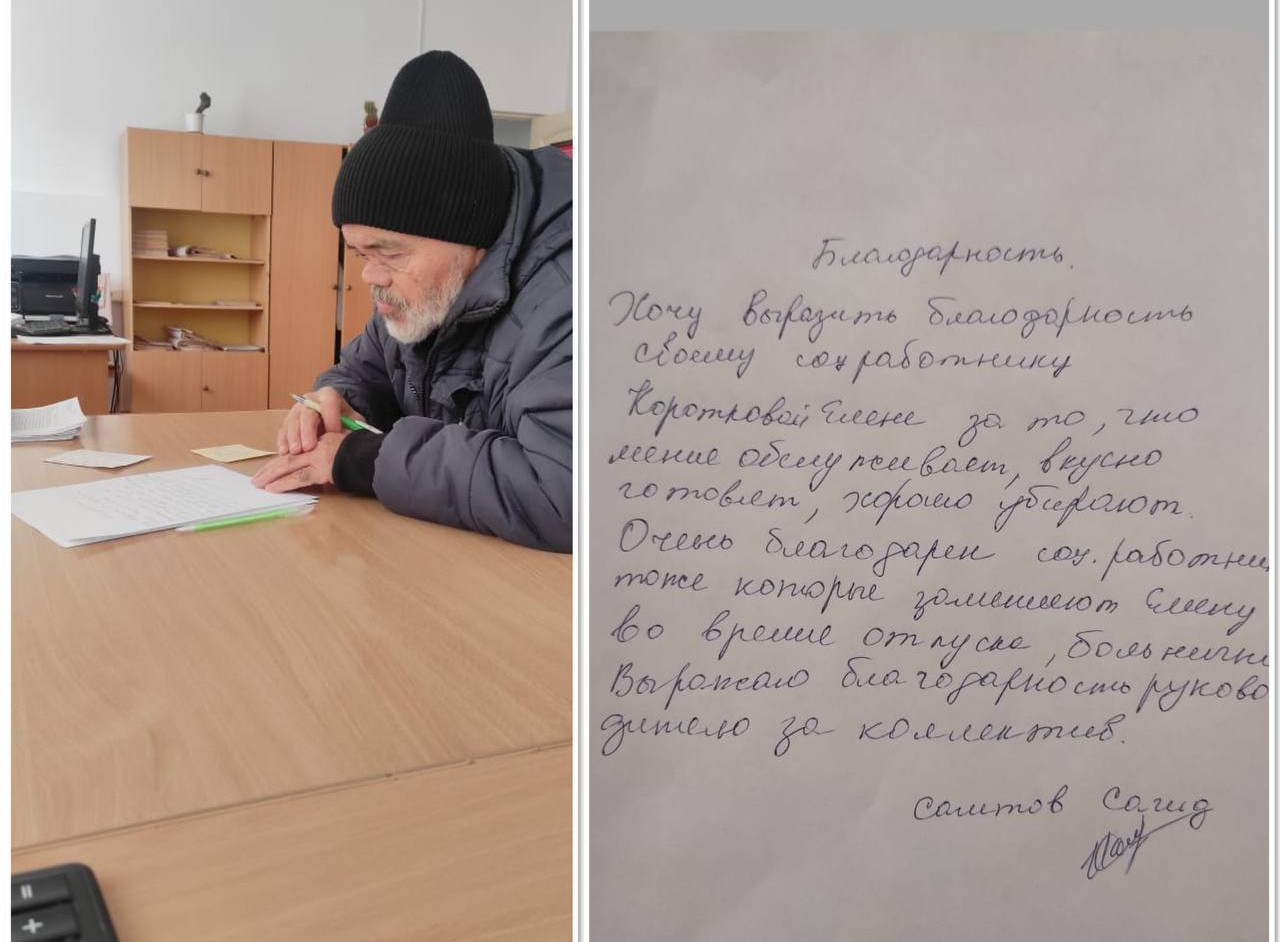 Благодарность.
Хочу выразить благодарность
своему соцработнику
Коротковой Елене за то, что
мение обслуживает, вкусно
готовят, хорошо убирают.
Очень благодарен соц. работни
тоже которые заменяют Елену
во время отпуска, больничн
Выражаю благодарность руково
дителю за коллектив.
Саитов Сагид
=
+